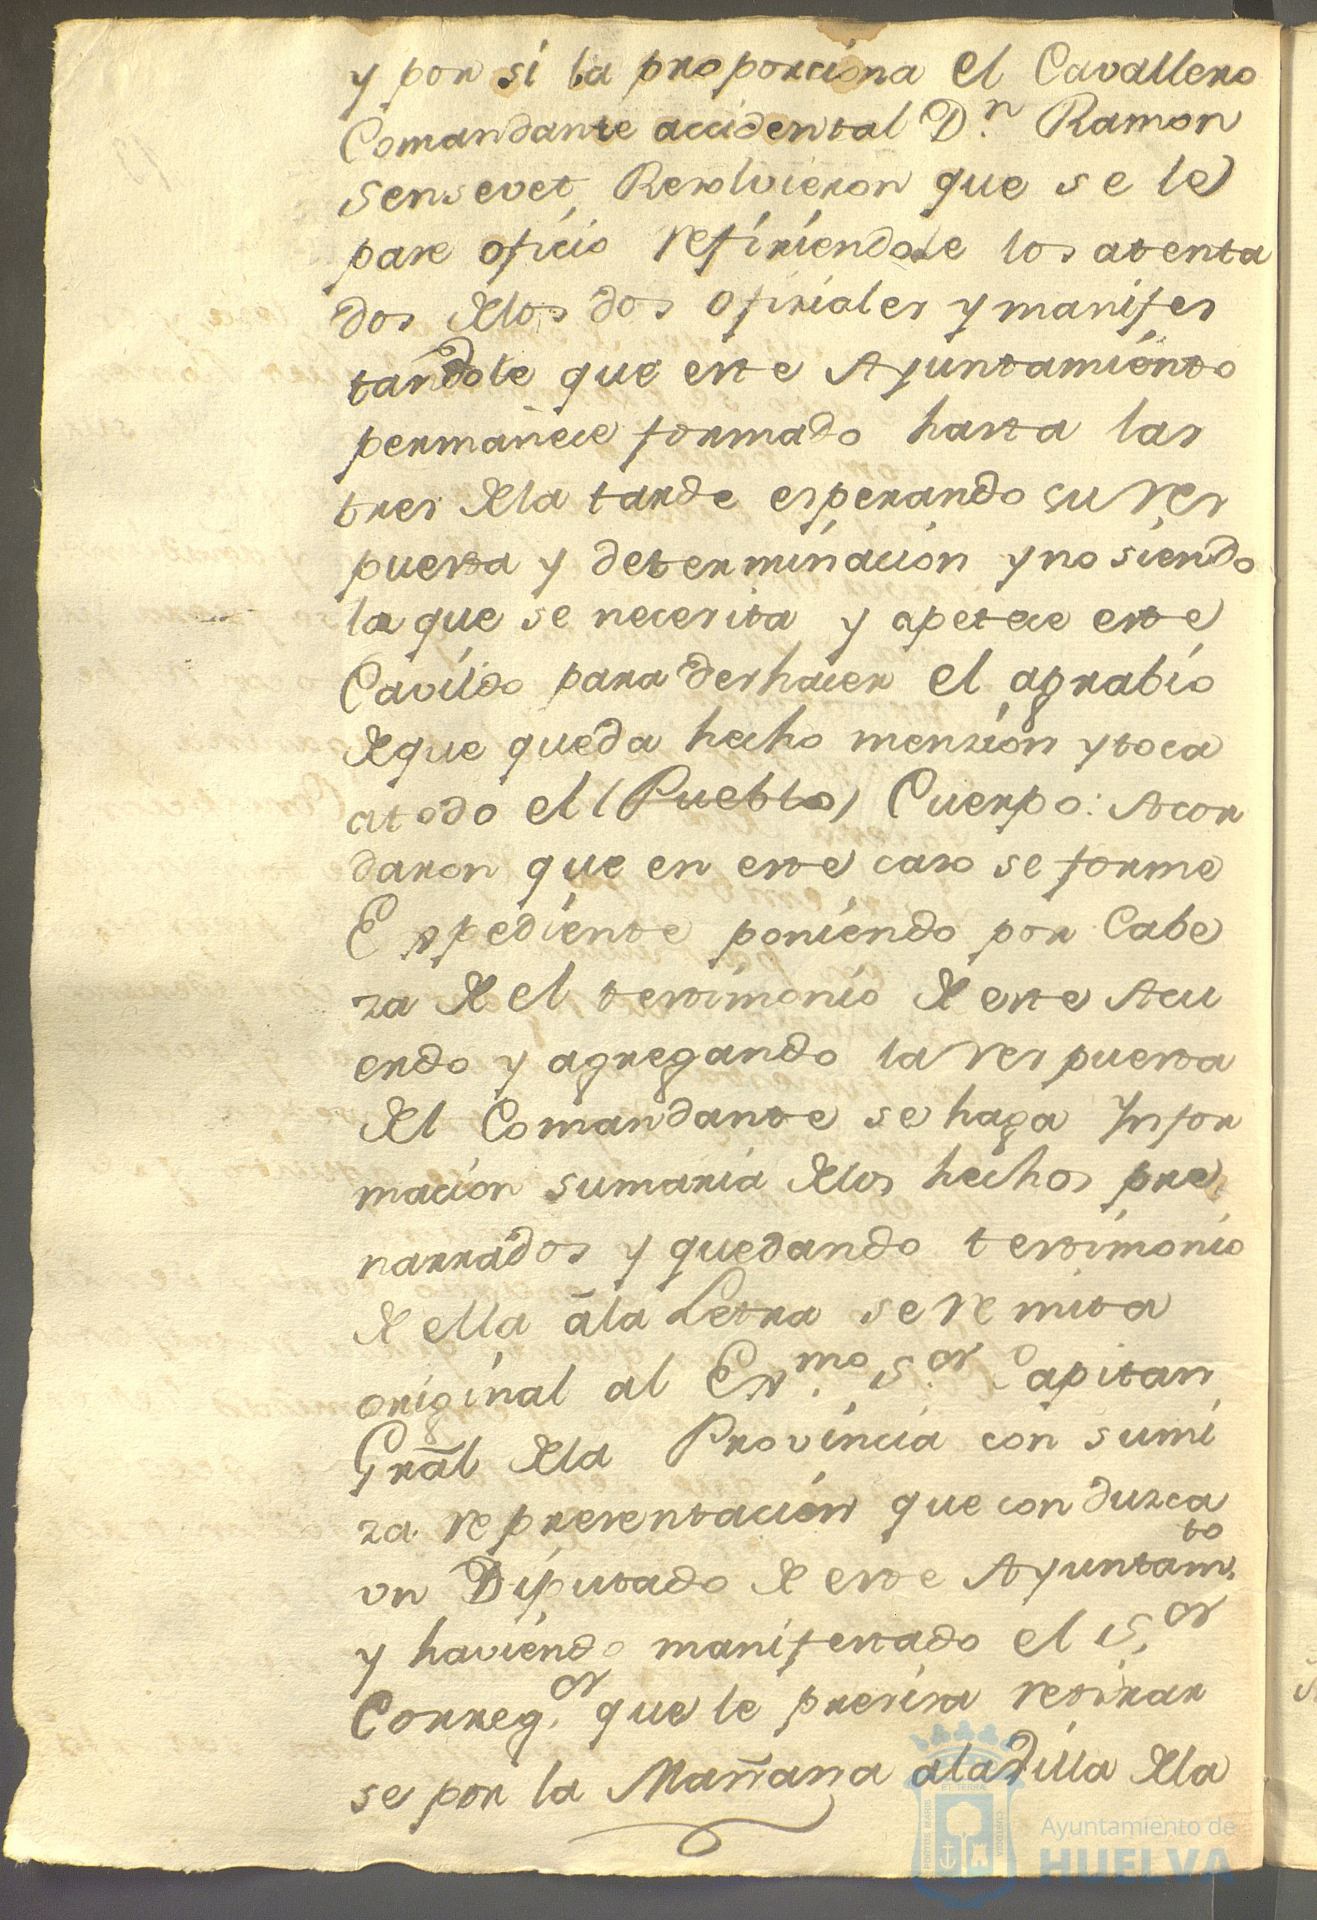 y por si la proporciona el Cavallero
Comandante accidental D.n Ramon
Sensevet, Resolvieron que se le
pase oficio refiriendole los atenta
dos delos dos oficiales y manifes
tandole que este Ayuntamiento
permanece formado hasta las
tres dela tarde esperando su res
puesta y determinacion y no siendo
la que se necesita y apetece este
Cavildo para deshacer el agrabio
deque queda hecho menzion y toca
atodo el (Pueblo) Cuerpo: Acor
daron que en este caso se forme
Expediente poniendo por Cabe
za de el testimonio de este Acu
erdo y agregando la respuesta
del Comandante se haga Infor
macion sumaria delos hechos pre
narrados y quedando testimonio
de ella ala Letra se remita
original al Ex.mo S.or Capitan
Gral dela Provincia con sumi
za representacion que conduzca
un Diputado de este Ayuntam.to
y haviendo manifestado el S.or
Correg.or que le precisa retirar
se por la Mañana ala Villa dela
Ayuntamiento de
HUELVA